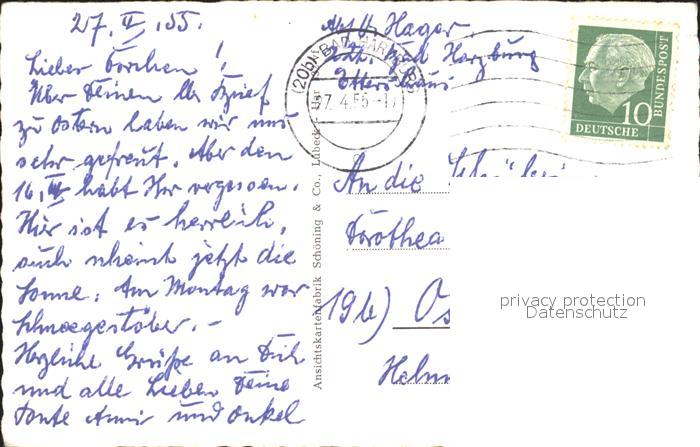 27. IV. 55.
Lieber Dorchen!
Über Deinen lb. Brief
zu Ostern haben wir uns
sehr gefreut. Aber den
16. habt Ihr vergessen.
Hier ist es herrlich,
auch scheint jetzt die
Sonne. Am Montag war
Schneegestöber. –
Herzliche Grüße an Dich
und alle Lieben Deine
Tante Anni und Onkel
Hager
Bad Harzburg
(20b) BAD HARZBURG
27. 4. 55
DEUTSCHE
BUNDESPOST
10
An die
Dorothea
19b) Os
Helm
Ansichtskartenfabrik Schöning & Co., Lübeck
privacy protection
Datenschutz